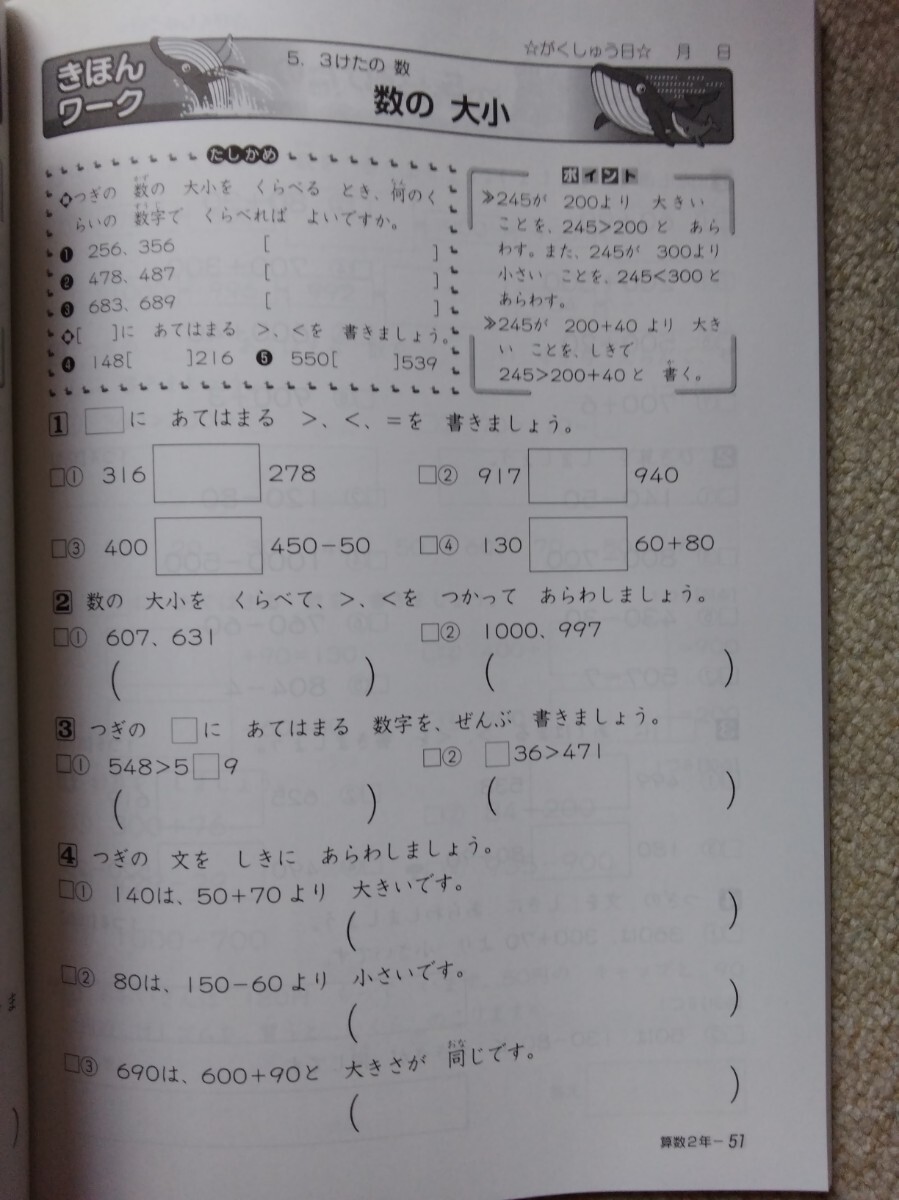 ☆がくしゅう日☆ 月 日
きほん
ワーク
5. 3けたの 数
数の 大小
たしかめ
つぎの 数の 大小を くらべる とき、何のく
らいの 数字で くらべれば よいですか。
❶ 256、356 [ ]
❷ 478、487 [ ]
❸ 683、689 [ ]
[ ]に あてはまる >、<を 書きましょう。
❹ 148[ ]216 ❺ 550[ ]539
ポイント
≫245が 200より 大きい
ことを、245>200と あら
わす。また、245が 300より
小さい ことを、245<300と
あらわす。
≫245が 200+40より 大き
い ことを、しきで
245>200+40と 書く。
1 □に あてはまる >、<、=を 書きましょう。
□① 316 □ 278 □② 917 □ 940
□③ 400 □ 450-50 □④ 130 □ 60+80
2 数の 大小を くらべて、>、<を つかって あらわしましょう。
□① 607、631 □② 1000、997
( ) ( )
3 つぎの □に あてはまる 数字を、ぜんぶ 書きましょう。
□① 548>5□9 □② □36>471
( ) ( )
4 つぎの 文を しきに あらわしましょう。
□① 140は、50+70より 大きいです。
( )
□② 80は、150-60より 小さいです。
( )
□③ 690は、600+90と 大きさが 同じです。
( )
算数2年-51